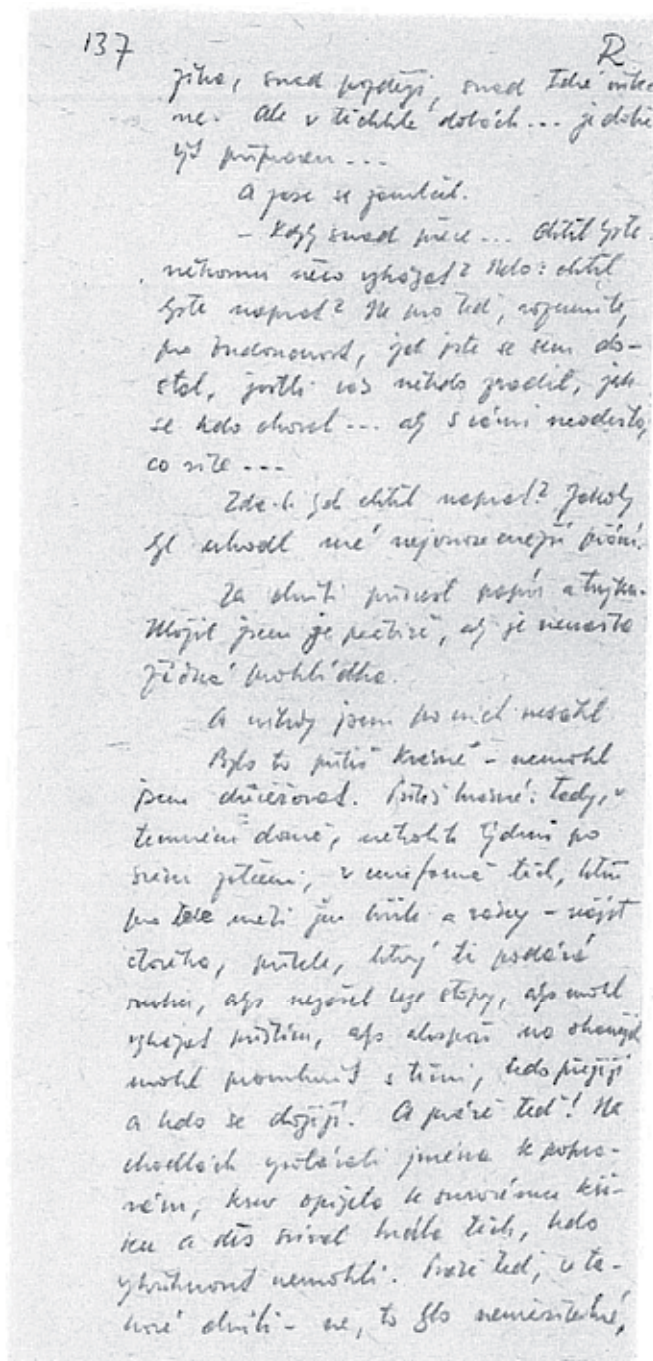 137 R
jiha, snad později, snad také nikdy
ne. Ale v těchhle dobách... je dobře
být připraven...
A zase se zamlčel.
- Kdyby snad přece... chtěl byste
někomu něco vzkázat? Nebo: chtěl
byste napsat? Ne pro teď, rozumíte,
pro budoucnost, jak jste se sem do-
stal, jestli vás někdo zradil, jak
se kdo choval... aby s vámi neodešlo,
co víte...
Zda-li jsem chtěl napsat? Jakoby
byl uhodl mé nejvroucnější přání.
Za chvíli přinesl papír a tužku.
Uložil jsem je pečlivě, aby je nenašla
žádná prohlídka.
A nikdy jsem po nich nesáhl
Bylo to příliš krásné - nemohl
jsem důvěřovat. Příliš krásné: tady, v
temném domě, několik týdnů po
svém zatčení, v uniformě těch, kteří
pro tebe měli jen křik a rány - najít
člověka, přítele, který ti podává
ruku, abys nezašel beze stopy, abys mohl
vzkázat příštím, abys alespoň na okamžik
mohl promluvit s těmi, kdo přežijí
a kdo se dožijí. A právě teď! Na
chodbách vyvolávali jména k popra-
vám, krev opíjela k surovému kři-
ku a děs svíral hrdla těch, kdo
vykřiknout nemohli. Právě teď, v ta-
kové chvíli - ne, to bylo neuvěřitelné,